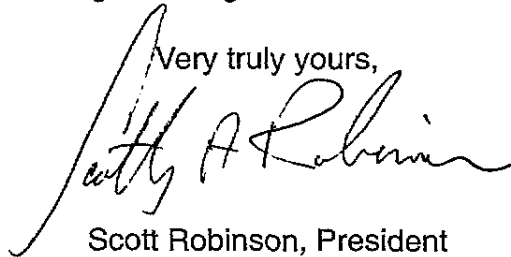 Very truly yours,
Scotty A Robinson
Scott Robinson, President